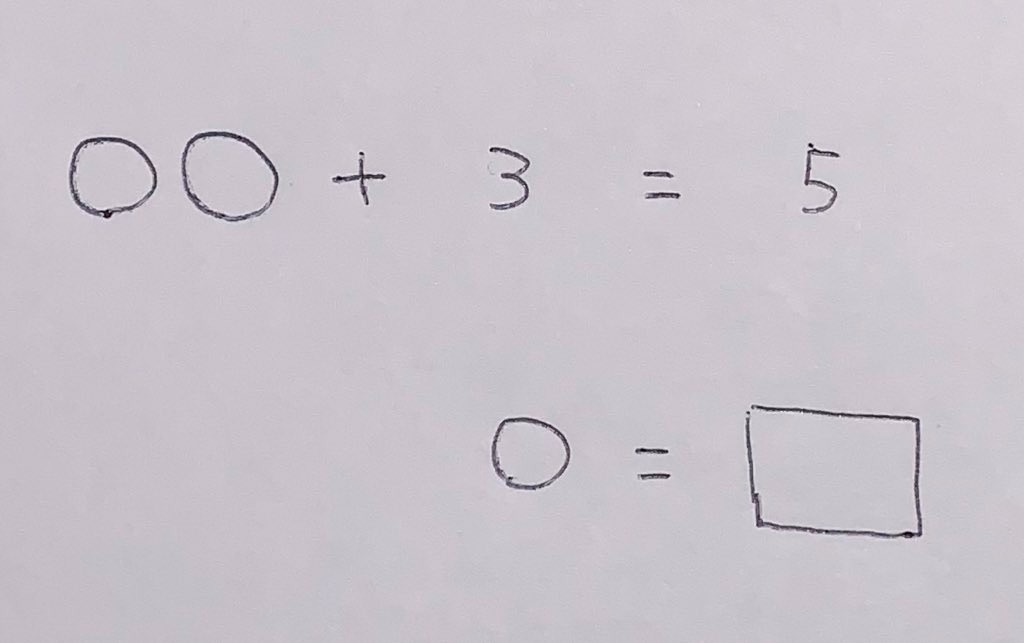 ○○ + 3 = 5
○ = □